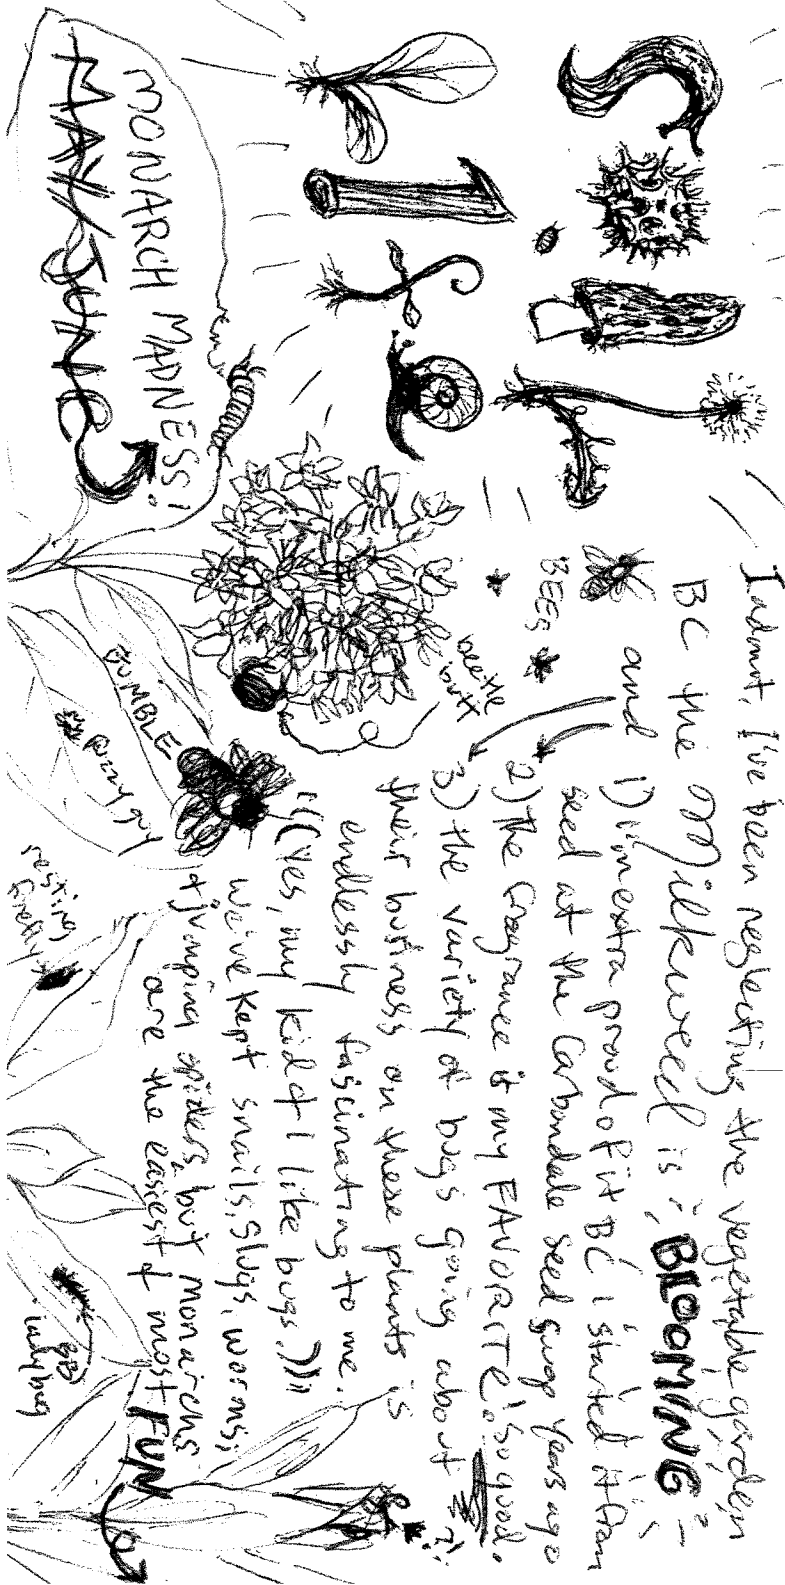 SOIL
LIFE
MONARCH MADNESS!
MAY/JUNE
I admit, I've been neglecting the vegetable garden
BC the Milkweed is BLOOMING
BEES
and 1) I'm extra proud of it BC I started it from
seed at the Carbondale Seed swap years ago
2) The fragrance is my FAVORITE! So good.
beetle
butt
3) the variety of bugs going about
their business on these plants is
endlessly fascinating to me.
(((Yes, my kid & I like bugs.)))
We've kept snails, slugs, worms,
& jumping spiders, but monarchs
are the easiest & most FUN
BUMBLE
fuzzy guy
resting
firefly
ladybug